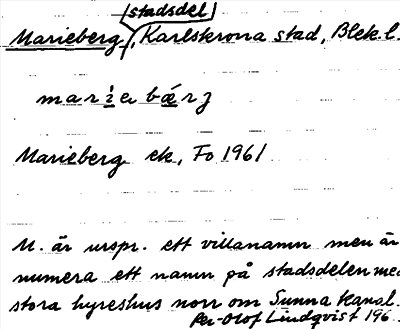 stadsdel
Marieberg, Karlskrona stad, Blek. l.
Marieberg ek, Fo 1961
M. är urspr. ett villanamn men är
numera ett namn på stadsdelen med
stora hyreshus norr om Sunna kanal.
Per-Olof Lindqvist 196